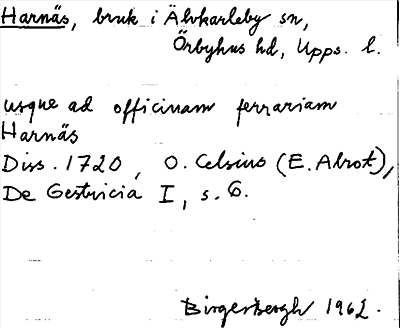 Harnäs, bruk i Älvkarleby sn,
Örbyhus hd, Upps. l.
usque ad officinam ferrariam
Harnäs
Diss. 1720, O. Celsius (E. Alrot),
De Gestricia I, s. 6.
Birger Bergh 1962.